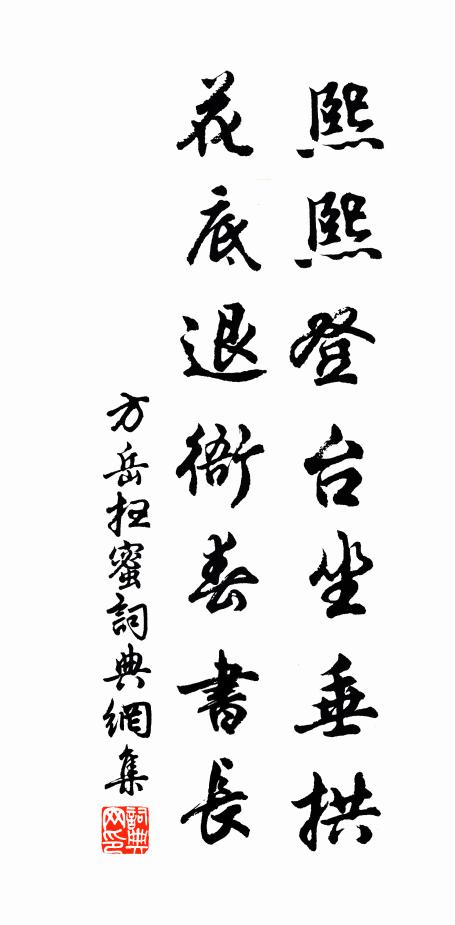 熙熙登台坐垂拱
花底退衙春書長
方岳抂蜜詞典網集
詞典网印